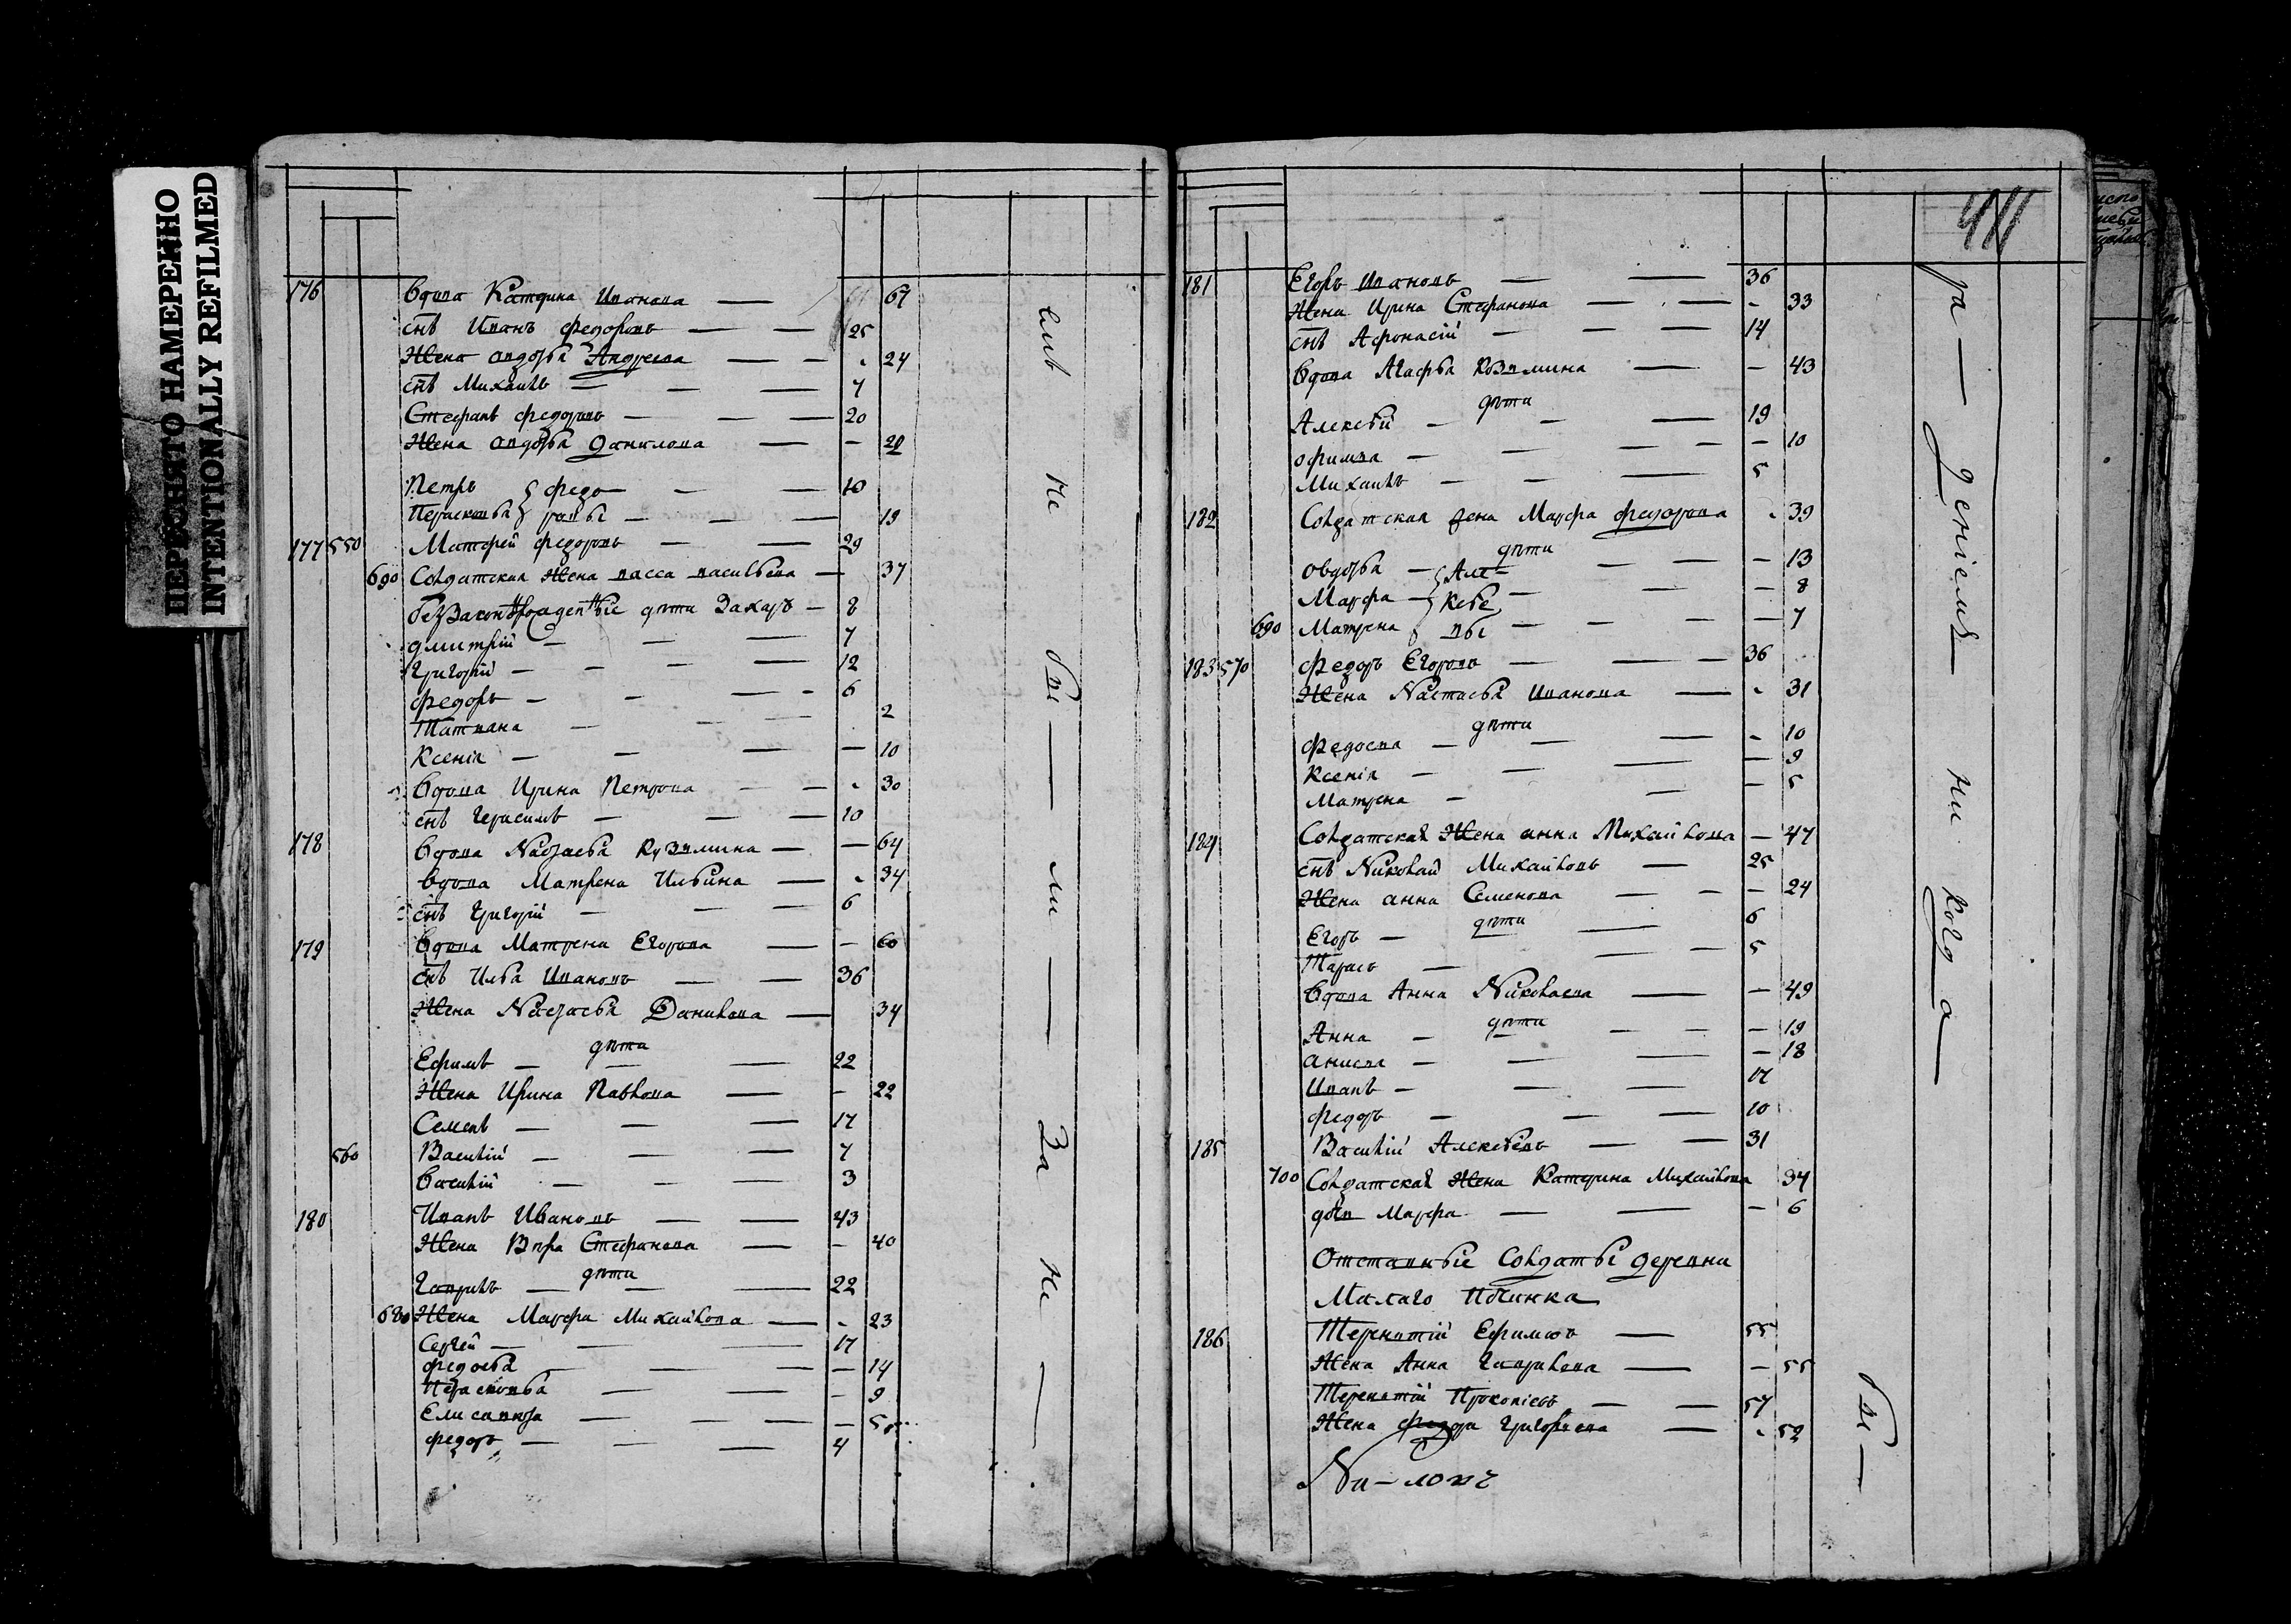 ПЕРЕСНЯТО НАМЕРЕННО
INTENTIONALLY REFILMED
176 вдова Катерина Иванова — 67
снъ Иванъ Федоровъ — — 25
Жена авдотья Андреева — — 24
снъ Михаилъ — — — 7
Стефанъ федоровъ — — — 20
Жена авдотья Данилова — — 20
Петръ } федо — — — 10
Перасковья } ровы — — — 19
177 550 Матфей Федоровъ — — 29
690 Солдатская Жена васса васильева — 37
без Законнорожденные дѣти Захаръ — 8
дмитрій — — — 7
Григорій — — — — 12
федоръ — — — - 6
Татиана — — — 2
Ксенія — — — — 10
вдова Ирина Петрова — — 30
снъ Герасимъ — — — 10
178 вдова Настасья Кузмина — — 64
вдова Матрена Ильина — 34
снъ Григорій — — — 6
179 вдова Матрена Егорова — — 60
снъ Илья Ивановъ — — 36
Жена Настасья Данилова — 34
дѣти
Ефимъ — — — 22
Жена Ирина Павлова — — 22
Семенъ — — — 17
560 Василій — — — 7
василій — — — 3
180 Иванъ Ивановъ — — 43
Жена Вѣра Стефанова — — 40
дѣти
Гаврилъ — — — 22
680 Жена Марфа Михайлова — 23
Сергей — — — 17
федосья — — — — 14
Перасковья — — — 9
Елисавета — — — — 5
федоръ — — — 4
ент не бы — ли — За не —
411
181 Егоръ Ивановъ — — 36
Жена Ирина Стефанова — — — 33
снъ Афонасій — — — 14
вдова Агафья Козмина — — 43
дѣти
Алексѣй — — — 19
офимья — — — — — 10
Михаилъ — — — 5
182 Солдатская жена Марфа федорова - 39
дѣти
овдотья — } Але= — — — 13
Марфа — } ксѣе — — — 8
690 Матрена } вы — — — — 7
183 570 федоръ Егоровъ — — — 36
Жена Настасья Иванова — 31
дѣти
федосья — — — - 10
Ксенія — — — — 9
Матрена — — — 5
184 Солдатская Жена анна Михайлова — 47
снъ Николай Михайловъ — 25
Жена анна Семенова — — — 24
дѣти
Егоръ — — 6
Тарасъ — — — 5
вдова Анна Николаева — — 49
дѣти
Анна — — — — 19
анисья — — — — 18
Иванъ — — — 17
федоръ — — — 10
185 Василій Алексѣевъ — — 31
700 Солдатская Жена Катерина Михайлова 34
дочь Марфа — — — 6
Отставные Солдаты деревни
Малаго Починка
186 Терентій Ефимовъ — 55
Жена Анна Гаврилова — — 55
Терентій Прокопіевъ — — 57
Жена федора Григорьева — - 52
ра — деніемъ — ни когда —
бы —